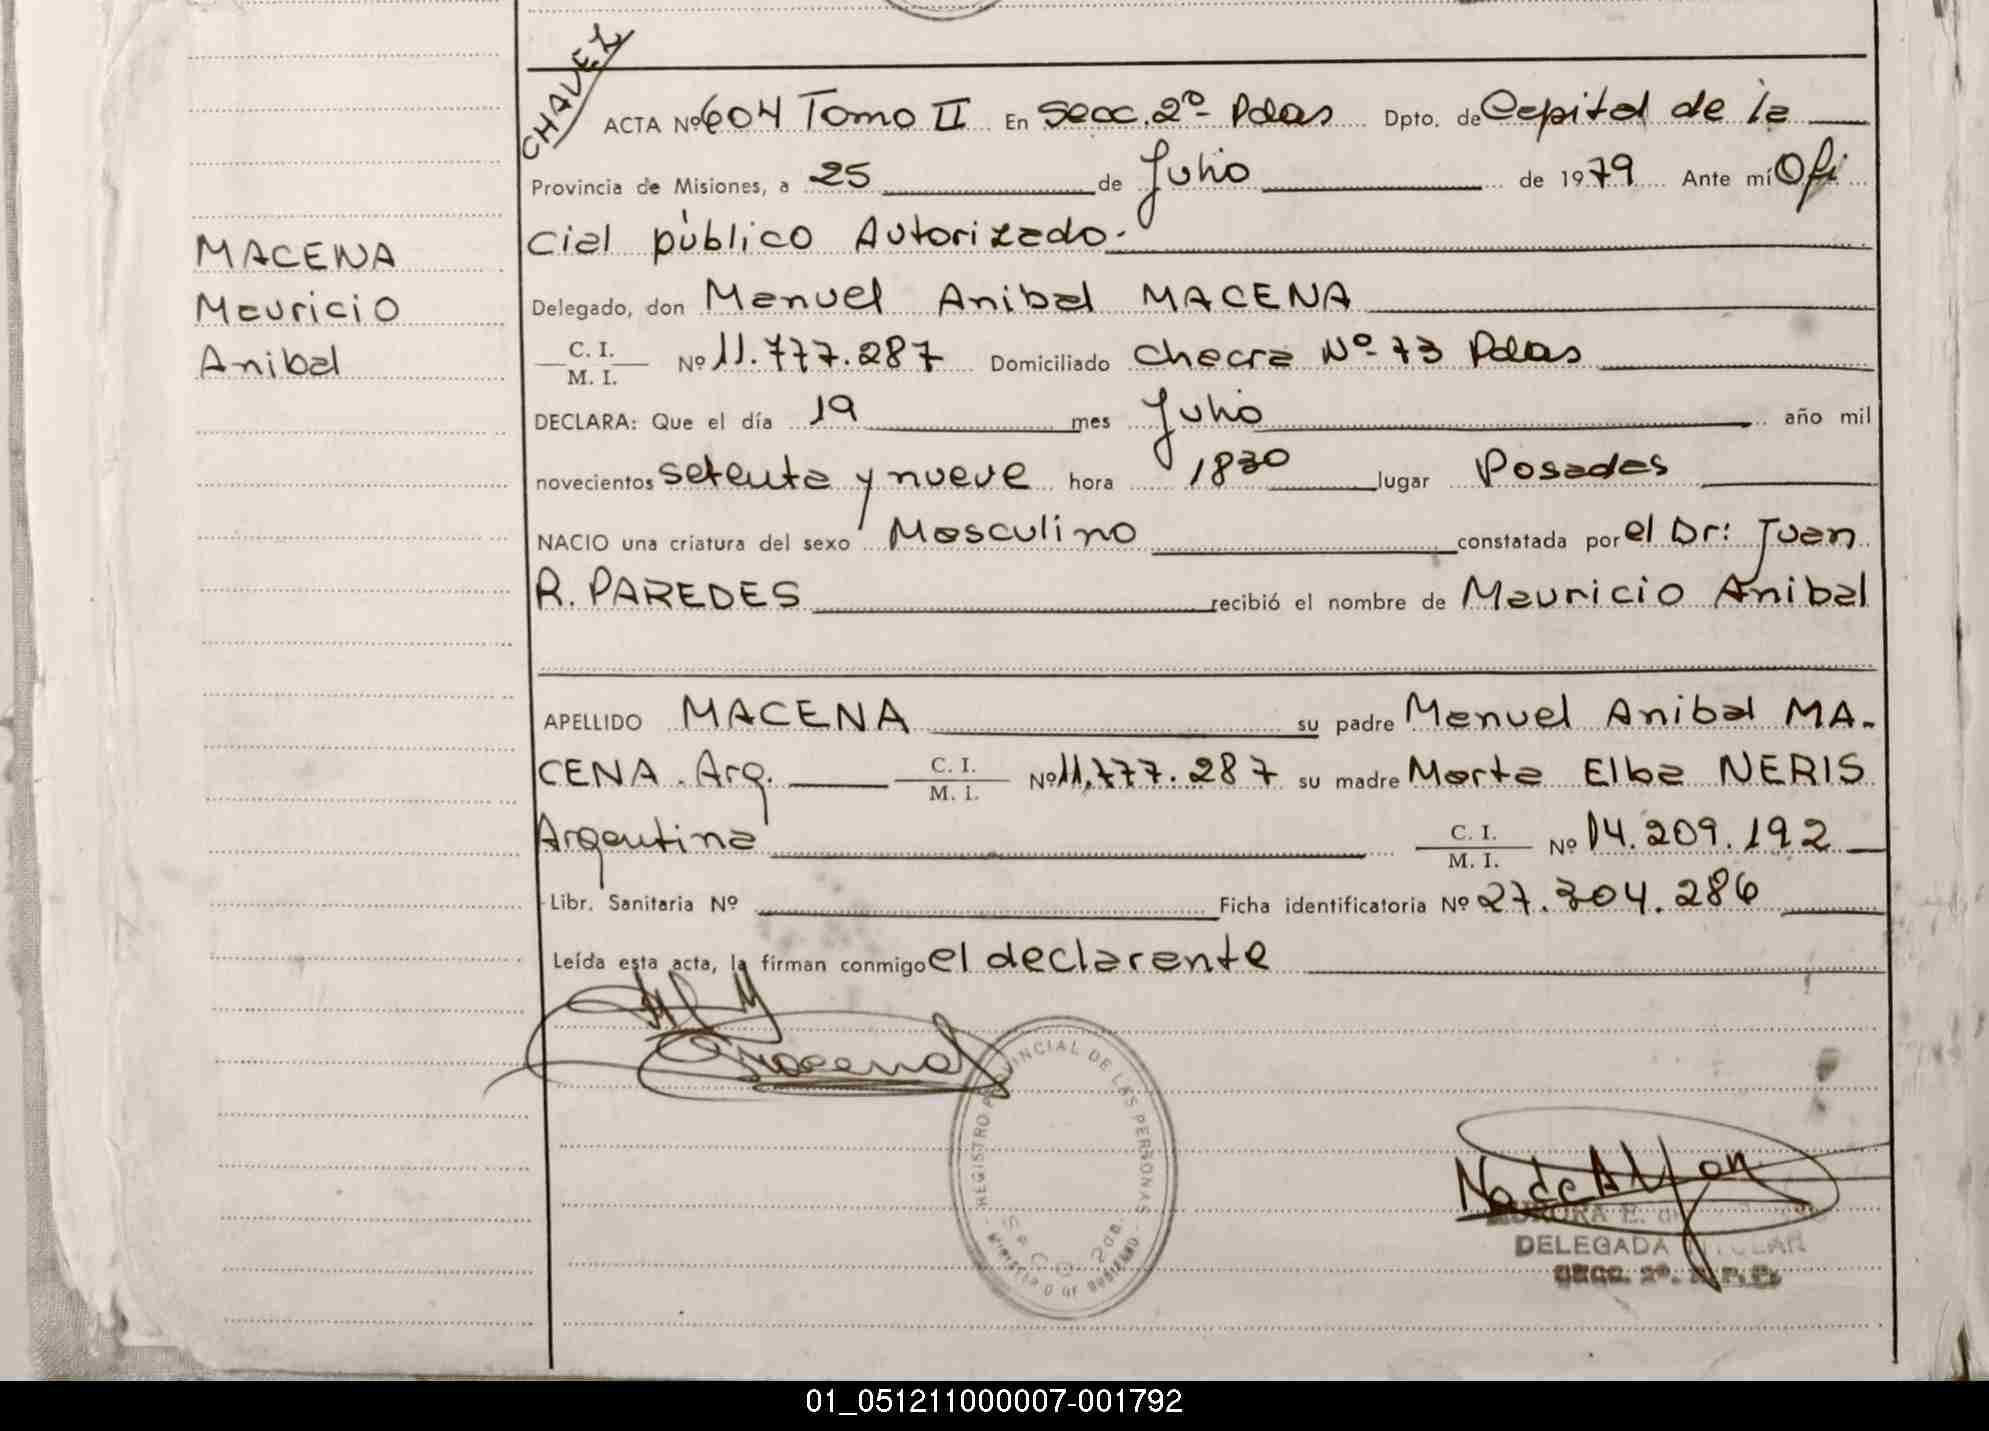 CHAVEZ
ACTA Nº 604 Tomo II En Secc. 2º Pdas Dpto. de Capital de la
Provincia de Misiones, a 25 de Julio de 1979 Ante mí Ofi
cial público Autorizado.
MACENA
Mauricio
Anibal
Delegado, don Manuel Anibal MACENA
C. I.
M. I.
Nº 11.777.287 Domiciliado Chacra Nº 73 Pdas
DECLARA: Que el día 19 mes Julio año mil
novecientos setenta y nueve hora 1830 lugar Posadas
NACIO una criatura del sexo Masculino constatada por el Dr: Juan
R. PAREDES recibió el nombre de Mauricio Anibal
APELLIDO MACENA su padre Manuel Anibal MA-
CENA. Arg. C. I.
M. I.
Nº 11.777.287 su madre Marta Elba NERIS
Argentina C. I.
M. I.
Nº 14.209.192
Libr. Sanitaria Nº Ficha identificatoria Nº 27.304.286
Leída esta acta, la firman conmigo el declarante
Macena
REGISTRO PROVINCIAL DE LAS PERSONAS
MINISTERIO DE GOBIERNO
AURORA E. de
DELEGADA TITULAR
SECC. 2ª. R. P. P.
01_051211000007-001792